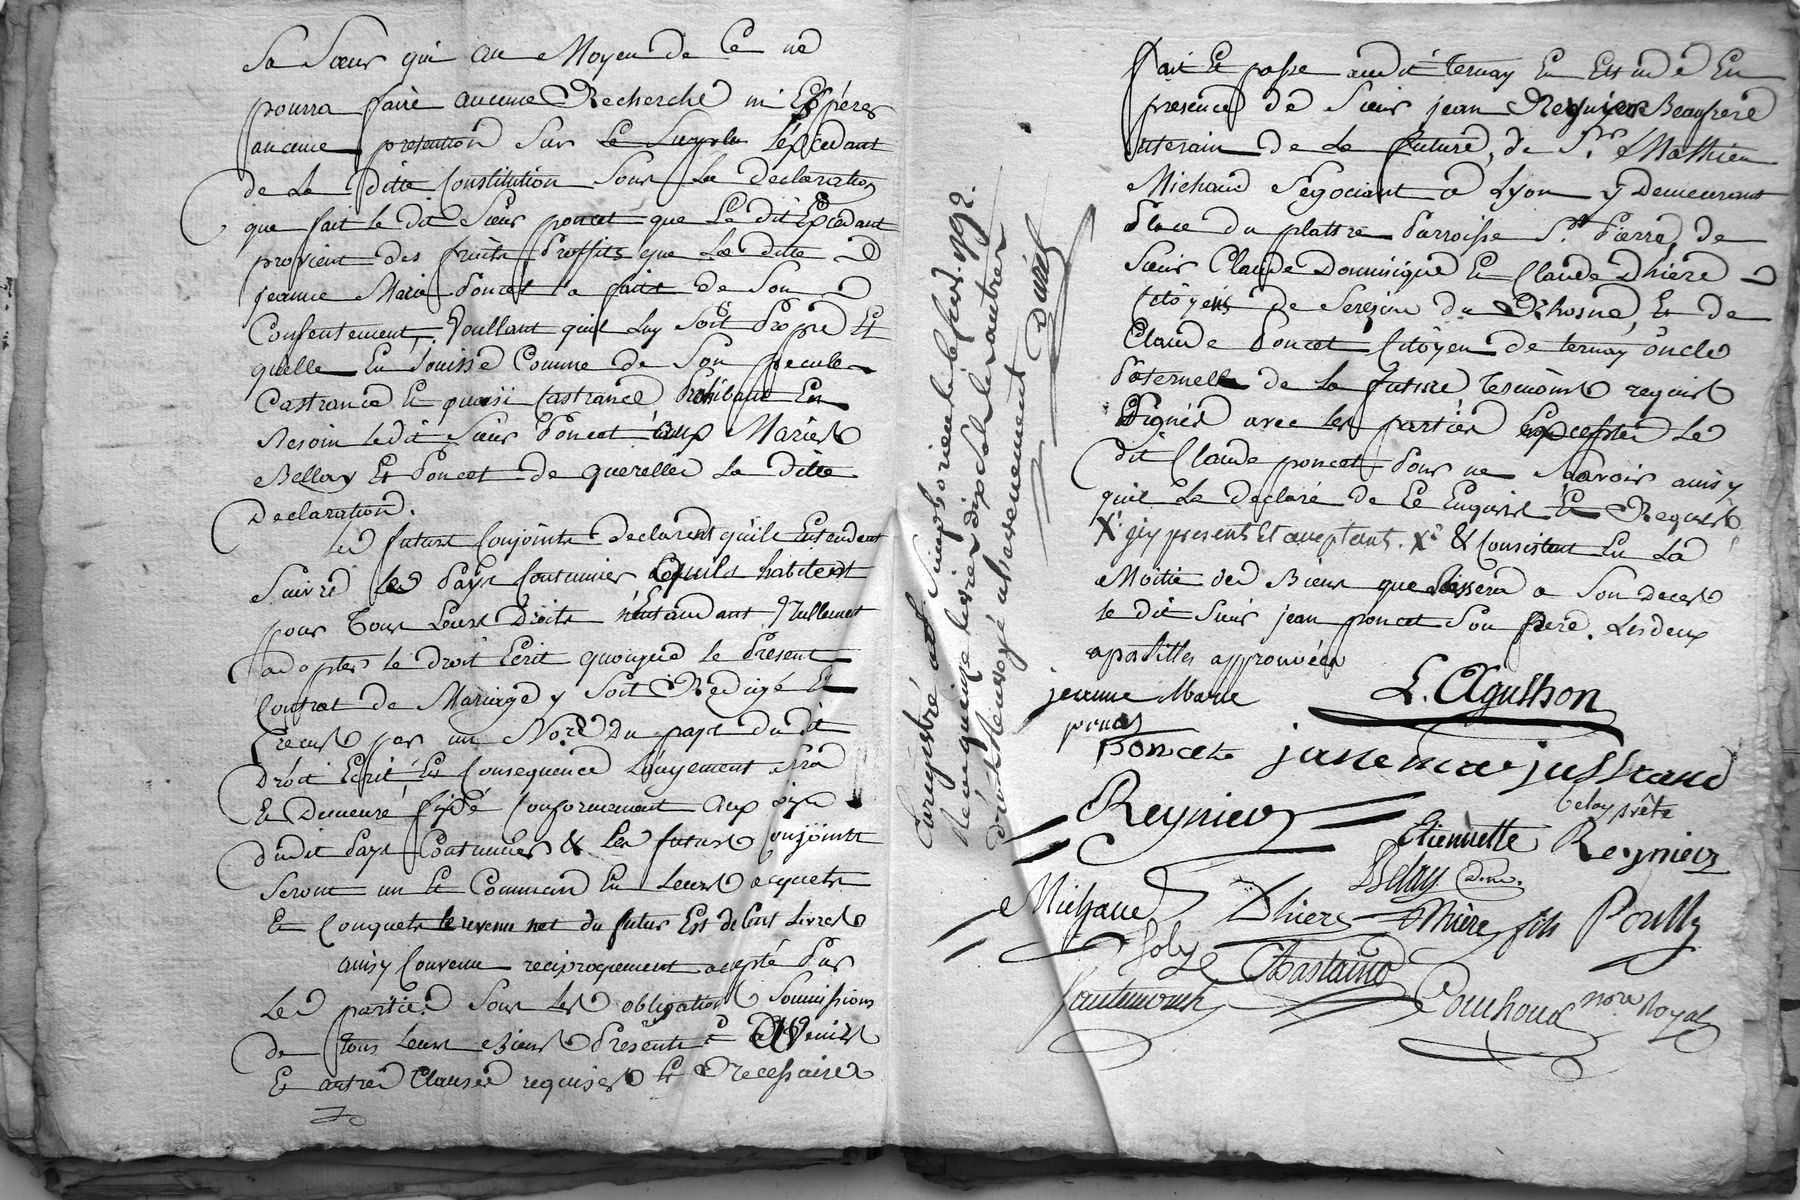 Sa Sœur qui au Moyen de Ce ne
pourra faire aucune Recherche ni Espérer
aucune pretention Sur Le Surplu l'éxcedant
de La ditte Constitution Sous La Declaration
que fait le dit Sieur poncet que Le dit Excedant
provient des fruits Proffits que La ditte
jeanne Marie Poncet a faits de Son
Consentement, Voullant quil Luy Soit Propre Et
quelle En Jouisse Comme de Son pecule
Castrance Et quasi Castrance Prohibant En
Besoin ledit Sieur Poncet aux Mariés
Bellay Et Poncet de quereller La ditte
Declaration.
Les futurs Conjoints declarent quils Entendent
Suivre Les Pays Coutumier Lesquils habitent
pour Tous Leurs Droits n'entandant Nullement
adopter le droit Ecrit quoique le Présent
Contrat de Mariage y Soit Redigé Et
recus par un Nore Du pays dudit
droit Ecrit En Consequence Laugement Sera
Et Demeure fixé Conformement aux
dudit Pays Coutumier & Les futurs Conjoints
Seront un Et Commun En Leurs acquets
Et Conquets le revenu net du futur Est de Cent Livres
ainsy Convenu reciproquement accepté Par
Les parties Sous Les obligations Soumissions
de tous leurs Biens Présents et Avenirs
Et autres Clauses requises Et Necessaires
Enregistré a St Simphorien le
quinze livres dix sols le
Droit
Fait Et passe audit Ternay En Etude En
presence de Sieur jean Reynier Beaufrere
uterain de La future, de Sr Mathieu
Michaud Negociant a Lyon y Demeurant
Place du plattre Parroisse St Pierre, de
Sieur Claude Dominique Et Claude Dhiere
Citoyens de Seresin du Rhosne, Et de
Claude Poncet Citoyen de ternay oncle
Paternelle de La future Tesmoins requis
Signés avec les parties Excepter Le
dit Claude poncet Pour ne Sçavoir ainsy
quil La declaré de Ce Enquis Et Requis
X icy presents Et aceptans. X & Consistent En La
Moitié des Biens que laissera a Son Deces
le dit Sieur jean poncet Son pere. Les deux
apostilles approuvées
jeanne Marie
L. Agulhon
Poncet
Reynier
belay prêtre
Etiennette Reynier
Belay
Michaud Dhiere Dhière fils Pouilly
Joly Chastaing
Couchoud nore Royal